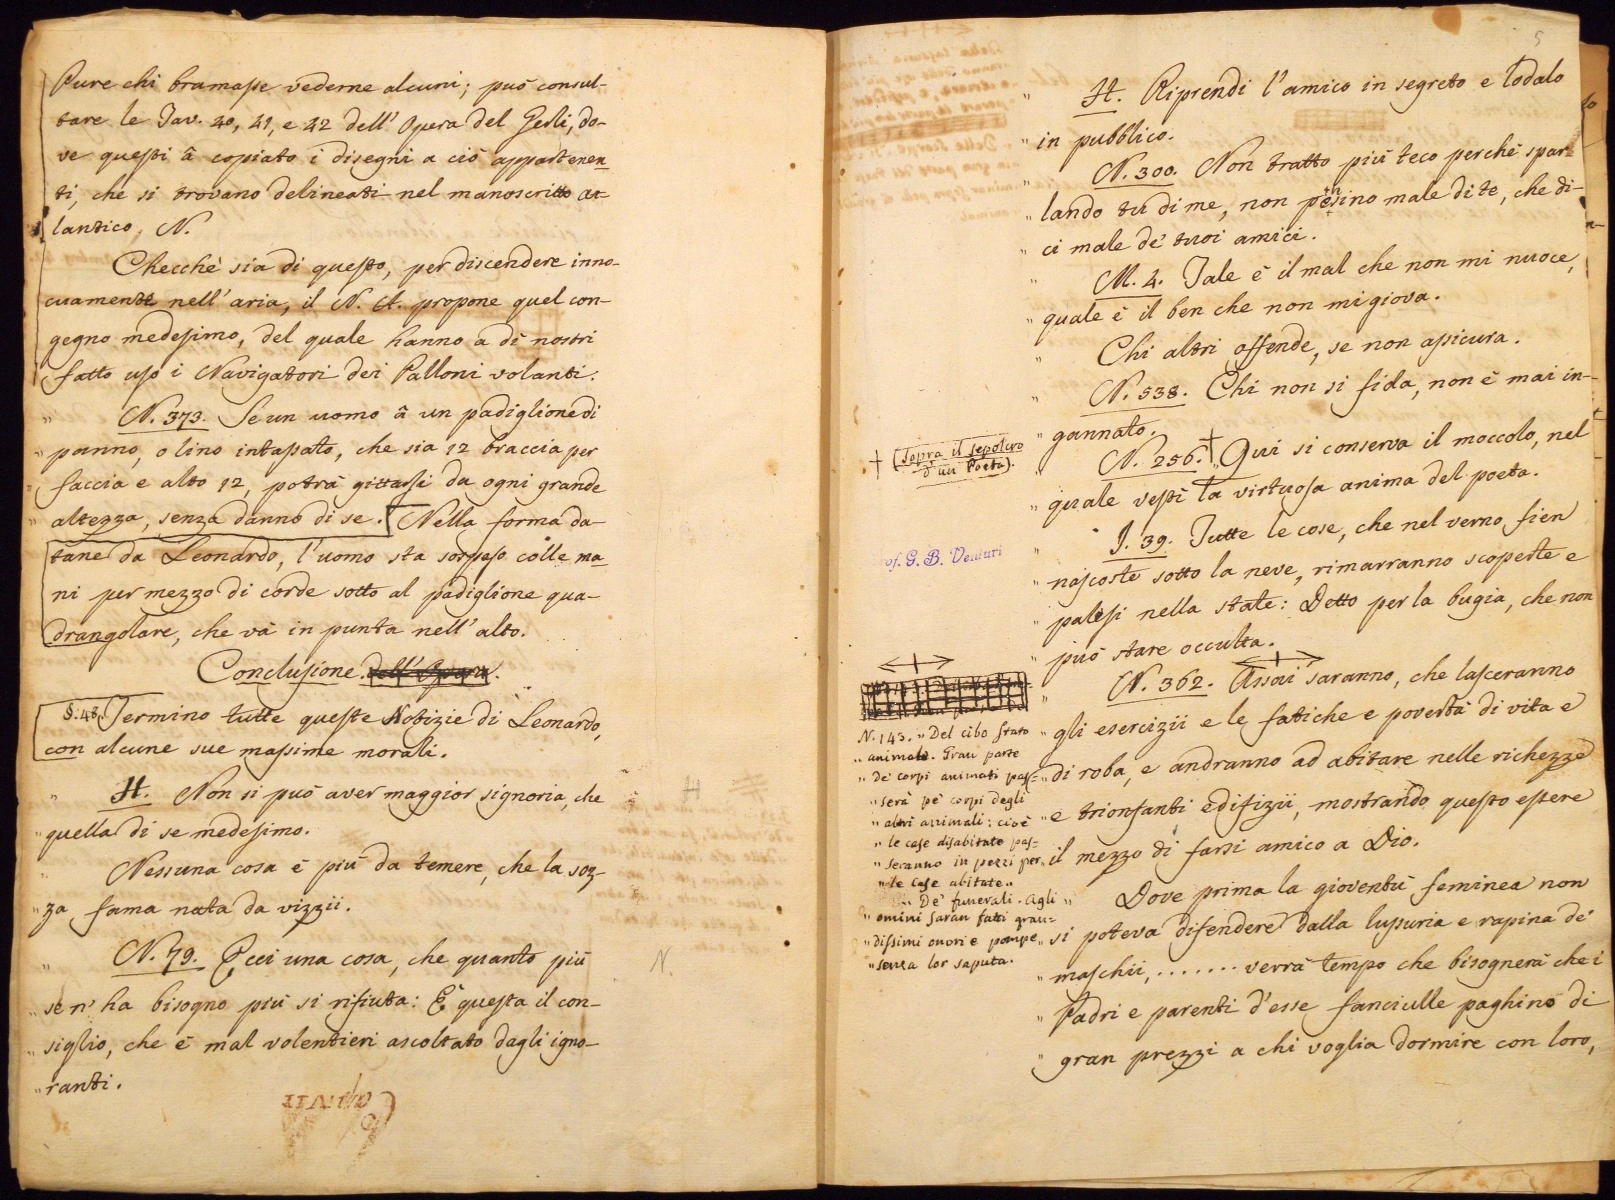 Pure chi bramasse vederne alcuni; può consul-
tare le Tav. 40, 41, e 42 dell' Opera del Gerli, do-
ve questi â copiato i disegni a ciò appartenen
ti, che si trovano delineati nel manoscritto at-
lantico. N.
Checchè sia di questo, per discendere inno-
cuamente nell'aria, il N. A. propone quel con-
gegno medesimo, del quale hanno a dì nostri
fatto uso i Navigatori dei Palloni volanti.
" N. 373. Se un uomo â un padiglione di
" panno, o lino intassato, che sia 12 braccia per
" faccia e alto 12, potrà gittarsi da ogni grande
" altezza, senza danno di se. Nella forma da-
tane da Leonardo, l'uomo sta sospeso colle ma
ni per mezzo di corde sotto al padiglione qua-
drangolare, che và in punta nell'alto.
Conclusione dell'Opera.
§. 48. Termino tutte queste Notizie di Leonardo,
con alcune sue massime morali.
" H. Non si può aver maggior signoria, che
" quella di se medesimo.
" Nessuna cosa è più da temere, che la soz-
" za fama nata da vizzii.
" N. 79. Ecci una cosa, che quanto più
" se n' ha bisogno più si rifiuta: È questa il con-
" siglio, che è mal volentieri ascoltato dagli igno-
" ranti.
H
N.
5
" H. Riprendi l'amico in segreto e lodalo
" in pubblico.
" N. 300. Non tratto più teco perchè spar-
" lando tu di me, non pensino male di te, che di-
" ci male de' tuoi amici.
" M. 4. Tale è il mal che non mi nuoce,
" quale è il ben che non mi giova.
" Chi altri offende, se non assicura.
" N. 538. Chi non si fida, non è mai in-
" gannato.
† (Sopra il sepolcro
d'un Poeta).
N. 256. † " Qui si conserva il moccolo, nel
" quale vestì la virtuosa anima del poeta.
" I. 39. Tutte le cose, che nel verno sien
" nascoste sotto la neve, rimarranno scoperte e
" palesi nella state: Detto per la bugia, che non
" può stare occulta.
of. G. B. Venturi
" N. 362. Assai saranno, che lasceranno
" gli esercizii e le fatiche e povertà di vita e
" di roba, e andranno ad abitare nelle richezze
" e trionfanti edifizii, mostrando questo essere
" il mezzo di farsi amico a Dio.
" Dove prima la gioventù feminea non
" si poteva difendere dalla lussuria e rapina de'
" maschii, ........ verrà tempo che bisognerà che i
" Padri e parenti d'esse fanciulle paghino di
" gran prezzi a chi voglia dormire con loro,
N. 143. " Del cibo stato
" animato. Gran parte
" de' corpi animati pas-
" serà pe' corpi degli
" altri animali: cioè
" le case disabitate pas-
" seranno in pezzi per
" le case abitate "
" De' funerali. Agli
" omini saran fatti gran-
" dissimi onori e pompe
" senza lor saputa.